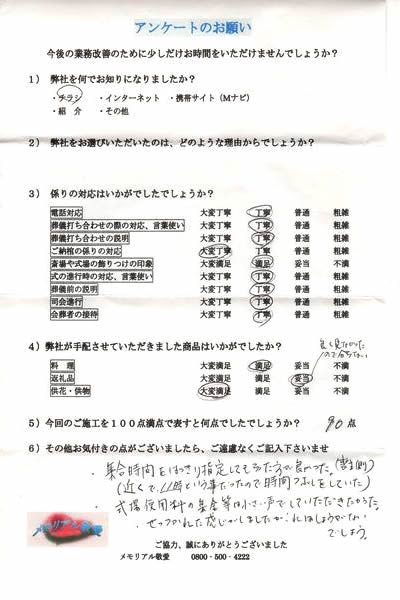 アンケートのお願い
今後の業務改善のために少しだけお時間をいただけませんでしょうか?
1) 弊社を何でお知りになりましたか?
・チラシ ・インターネット ・携帯サイト(Mナビ)
・紹 介 ・その他
2) 弊社をお選びいただいたのは、どのような理由からでしょうか?
3) 係りの対応はいかがでしたでしょうか?
電話対応 大変丁寧 丁寧 普通 粗雑
葬儀打ち合わせの際の対応、言葉使い 大変丁寧 丁寧 普通 粗雑
葬儀打ち合わせの説明 大変丁寧 丁寧 普通 粗雑
ご納棺の係りの対応 大変丁寧 丁寧 普通 粗雑
斎場や式場の飾りつけの印象 大変満足 満足 妥当 不満
式の進行時の対応、言葉使い 大変丁寧 丁寧 普通 粗雑
葬儀前の説明 大変丁寧 丁寧 普通 粗雑
司会進行 大変丁寧 丁寧 普通 粗雑
会葬者の接待 大変丁寧 丁寧 普通 粗雑
4) 弊社が手配させていただきました商品はいかがでしたか?
良く見なかった
ので分らない
料 理 大変満足 満足 妥当 不満
返礼品 大変満足 満足 妥当 不満
供花・供物 大変満足 満足 妥当 不満
5) 今回のご施工を100点満点で表すと何点でしたでしょうか? 90点
6) その他お気付きの点がございましたら、ご遠慮なくご記入下さいませ
・集合時間をはっきり指定してもらった方が良かった。
(近くで、11時という事だったので時間つぶしをしていた)
・式場使用料の集金等は小さい声でしていただきたかった。
せっつかれた感じがしましたが、これはしょうがない
でしょう。
メモリアル敬愛
ご協力、誠にありがとうございました
メモリアル敬愛 0800-500-4222